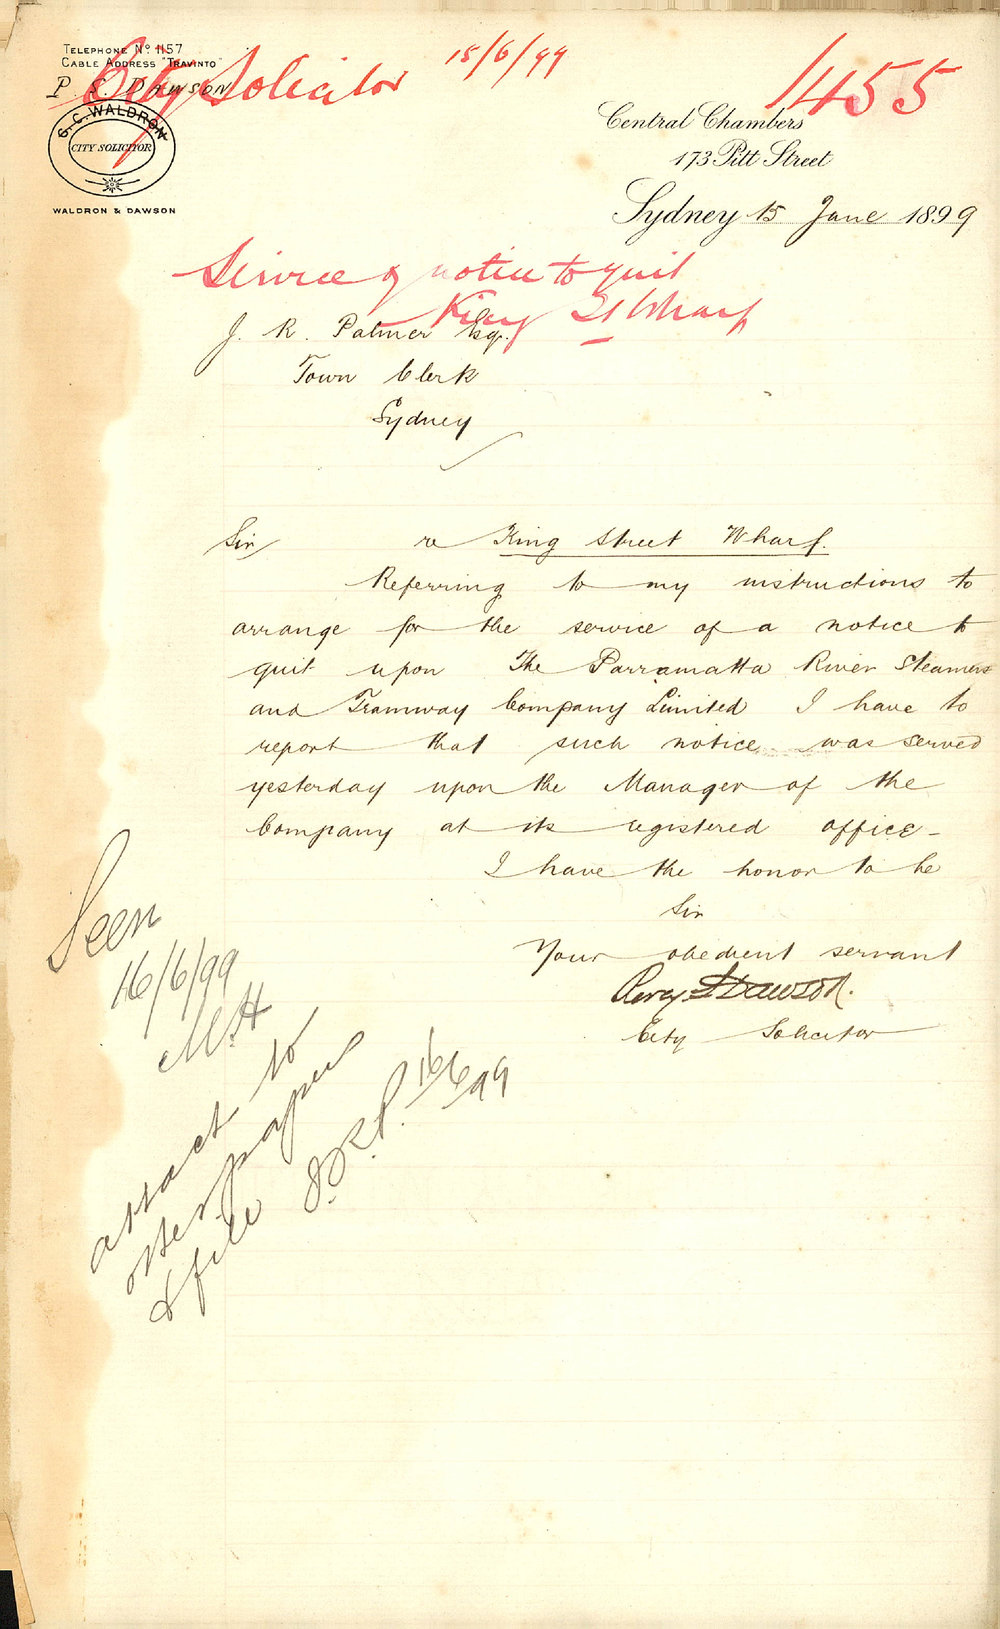 TELEPHONE Nº 1157
CABLE ADDRESS "TRAVINTO"
P. S. DAWSON
G. C. WALDRON
CITY SOLICITOR
WALDRON & DAWSON
City Solicitor 15/6/99
1455
Central Chambers
173 Pitt Street
Sydney 15 June 1899
Service of notice to quit
King St Wharf
J. R. Palmer Esq.
Town Clerk
Sydney
Sir re King Street Wharf.
Referring to my instructions to
arrange for the service of a notice to
quit upon The Parramatta River Steamers
and Tramway Company Limited I have to
report that such notice was served
yesterday upon the Manager of the
Company at its registered office -
I have the honor to be
Sir
Your obedient servant
Percy S Dawson.
City Solicitor
Seen
16/6/99
M.H
attach to
other papers
& file J.R.P. 16/6/99